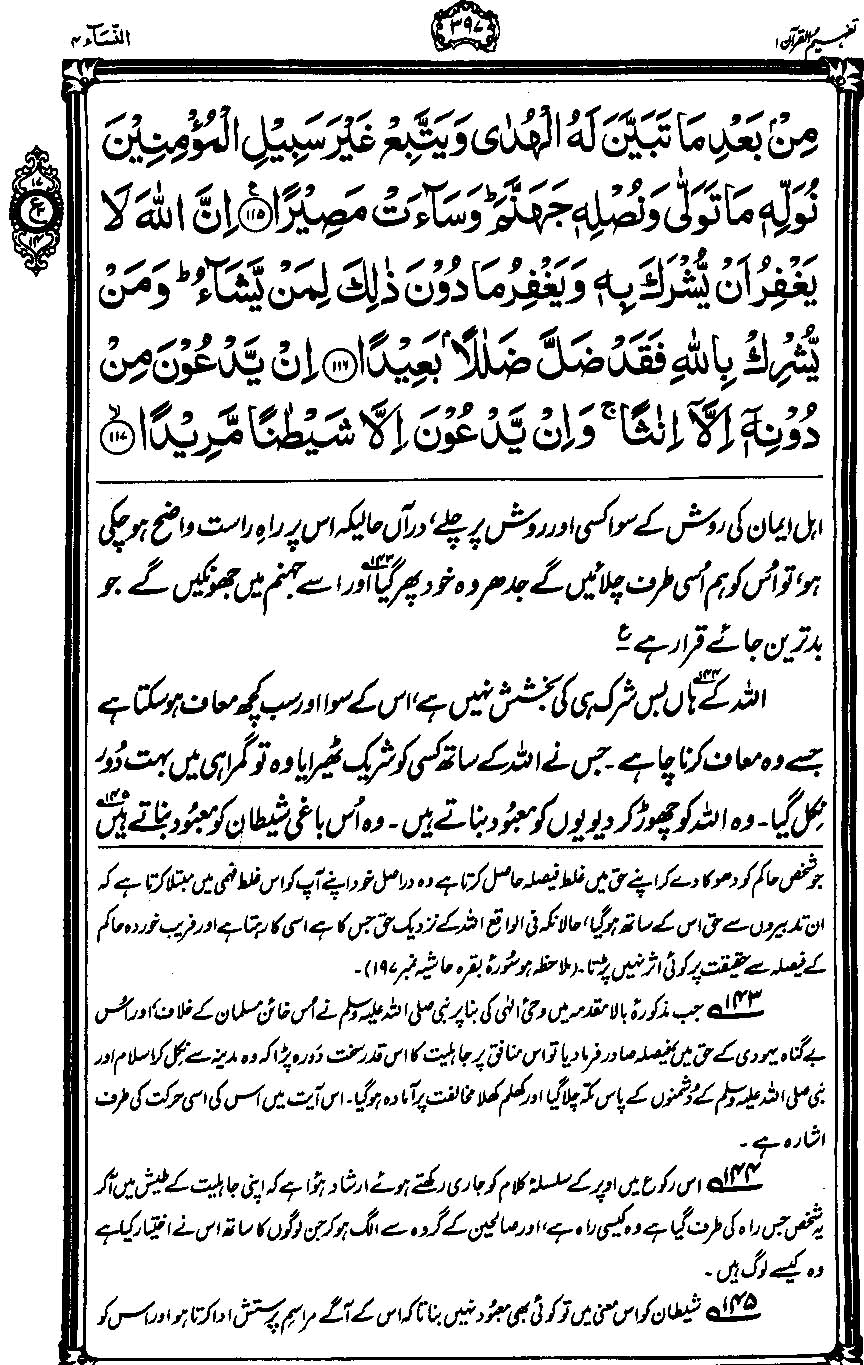 تفہیم القرآن ۱
۳۹۷
النّسَآء ۴
مِنْۢ بَعْدِ مَا تَبَیَّنَ لَهُ الْهُدٰی وَیَتَّبِعْ غَیْرَ سَبِیْلِ الْمُؤْمِنِیْنَ
نُوَلِّهٖ مَا تَوَلّٰی وَنُصْلِهٖ جَهَنَّمَ ؕ وَسَآءَتْ مَصِیْرًا ﴿۱۱۵﴾ اِنَّ اللّٰهَ لَا
یَغْفِرُ اَنْ یُّشْرَكَ بِهٖ وَیَغْفِرُ مَا دُوْنَ ذٰلِكَ لِمَنْ یَّشَآءُ ؕ وَمَنْ
یُّشْرِكْ بِاللّٰهِ فَقَدْ ضَلَّ ضَلٰلًۢا بَعِیْدًا ﴿۱۱۶﴾ اِنْ یَّدْعُوْنَ مِنْ
دُوْنِهٖۤ اِلَّاۤ اِنٰثًا ۚ وَاِنْ یَّدْعُوْنَ اِلَّا شَیْطٰنًا مَّرِیْدًا ﴿۱۱۷﴾ ۙ
۱۷
ع
۱۴
اہل ایمان کی روش کے سوا کسی اور روش پر چلے، درآں حالیکہ اس پر راہِ راست واضح ہو چکی
ہو، تو اُس کو ہم اُسی طرف چلائیں گے جدھر وہ خود پھر گیا۱۴۳ اور اسے جہنم میں جھونکیں گے جو
بدترین جائے قرار ہے ؏
اللہ کے ہاں۱۴۴ بس شرک ہی کی بخشش نہیں ہے، اس کے سوا اور سب کچھ معاف ہو سکتا ہے
جسے وہ معاف کرنا چاہے۔ جس نے اللہ کے ساتھ کسی کو شریک ٹھیرایا وہ تو گمراہی میں بہت دُور
نکل گیا۔ وہ اللہ کو چھوڑ کر دیویوں کو معبُود بناتے ہیں۔ وہ اُس باغی شیطان کو معبُود بناتے ہیں۱۴۵
جو شخص حاکم کو دھوکا دے کر اپنے حق میں غلط فیصلہ حاصل کرتا ہے وہ دراصل خود اپنے آپ کو اس غلط فہمی میں مبتلا کرتا ہے کہ
ان تدبیروں سے حق اس کے ساتھ ہو گیا، حالانکہ فی الواقع اللہ کے نزدیک حق جس کا ہے اسی کا رہتا ہے اور فریب خوردہ حاکم
کے فیصلہ سے حقیقت پر کوئی اثر نہیں پڑتا۔ (ملاحظہ ہو سُورۂ بقرہ حاشیہ نمبر ۱۹۷)۔
۱۴۳ جب مذکورۂ بالا مقدمہ میں وحیِ الٰہی کی بنا پر نبی صلی اللہ علیہ وسلم نے اُس خائن مسلمان کے خلاف، اور اُس
بے گناہ یہودی کے حق میں فیصلہ صادر فرما دیا تو اس منافق پر جاہلیت کا اس قدر سخت دَورہ پڑا کہ وہ مدینہ سے نکل کر اسلام اور
نبی صلی اللہ علیہ وسلم کے دُشمنوں کے پاس مکّہ چلا گیا اور کھلم کھلا مخالفت پر آمادہ ہو گیا۔ اس آیت میں اس کی اسی حرکت کی طرف
اشارہ ہے۔
۱۴۴ اس رکوع میں اوپر کے سلسلۂ کلام کو جاری رکھتے ہوئے ارشاد ہؤا ہے کہ اپنی جاہلیت کے طیش میں آکر
یہ شخص جس راہ کی طرف گیا ہے وہ کیسی راہ ہے، اور صالحین کے گروہ سے الگ ہو کر جن لوگوں کا ساتھ اس نے اختیار کیا ہے
وہ کیسے لوگ ہیں۔
۱۴۵ شیطان کو اس معنی میں تو کوئی بھی معبُود نہیں بناتا کہ اس کے آگے مراسمِ پرستش ادا کرتا ہو اور اس کو